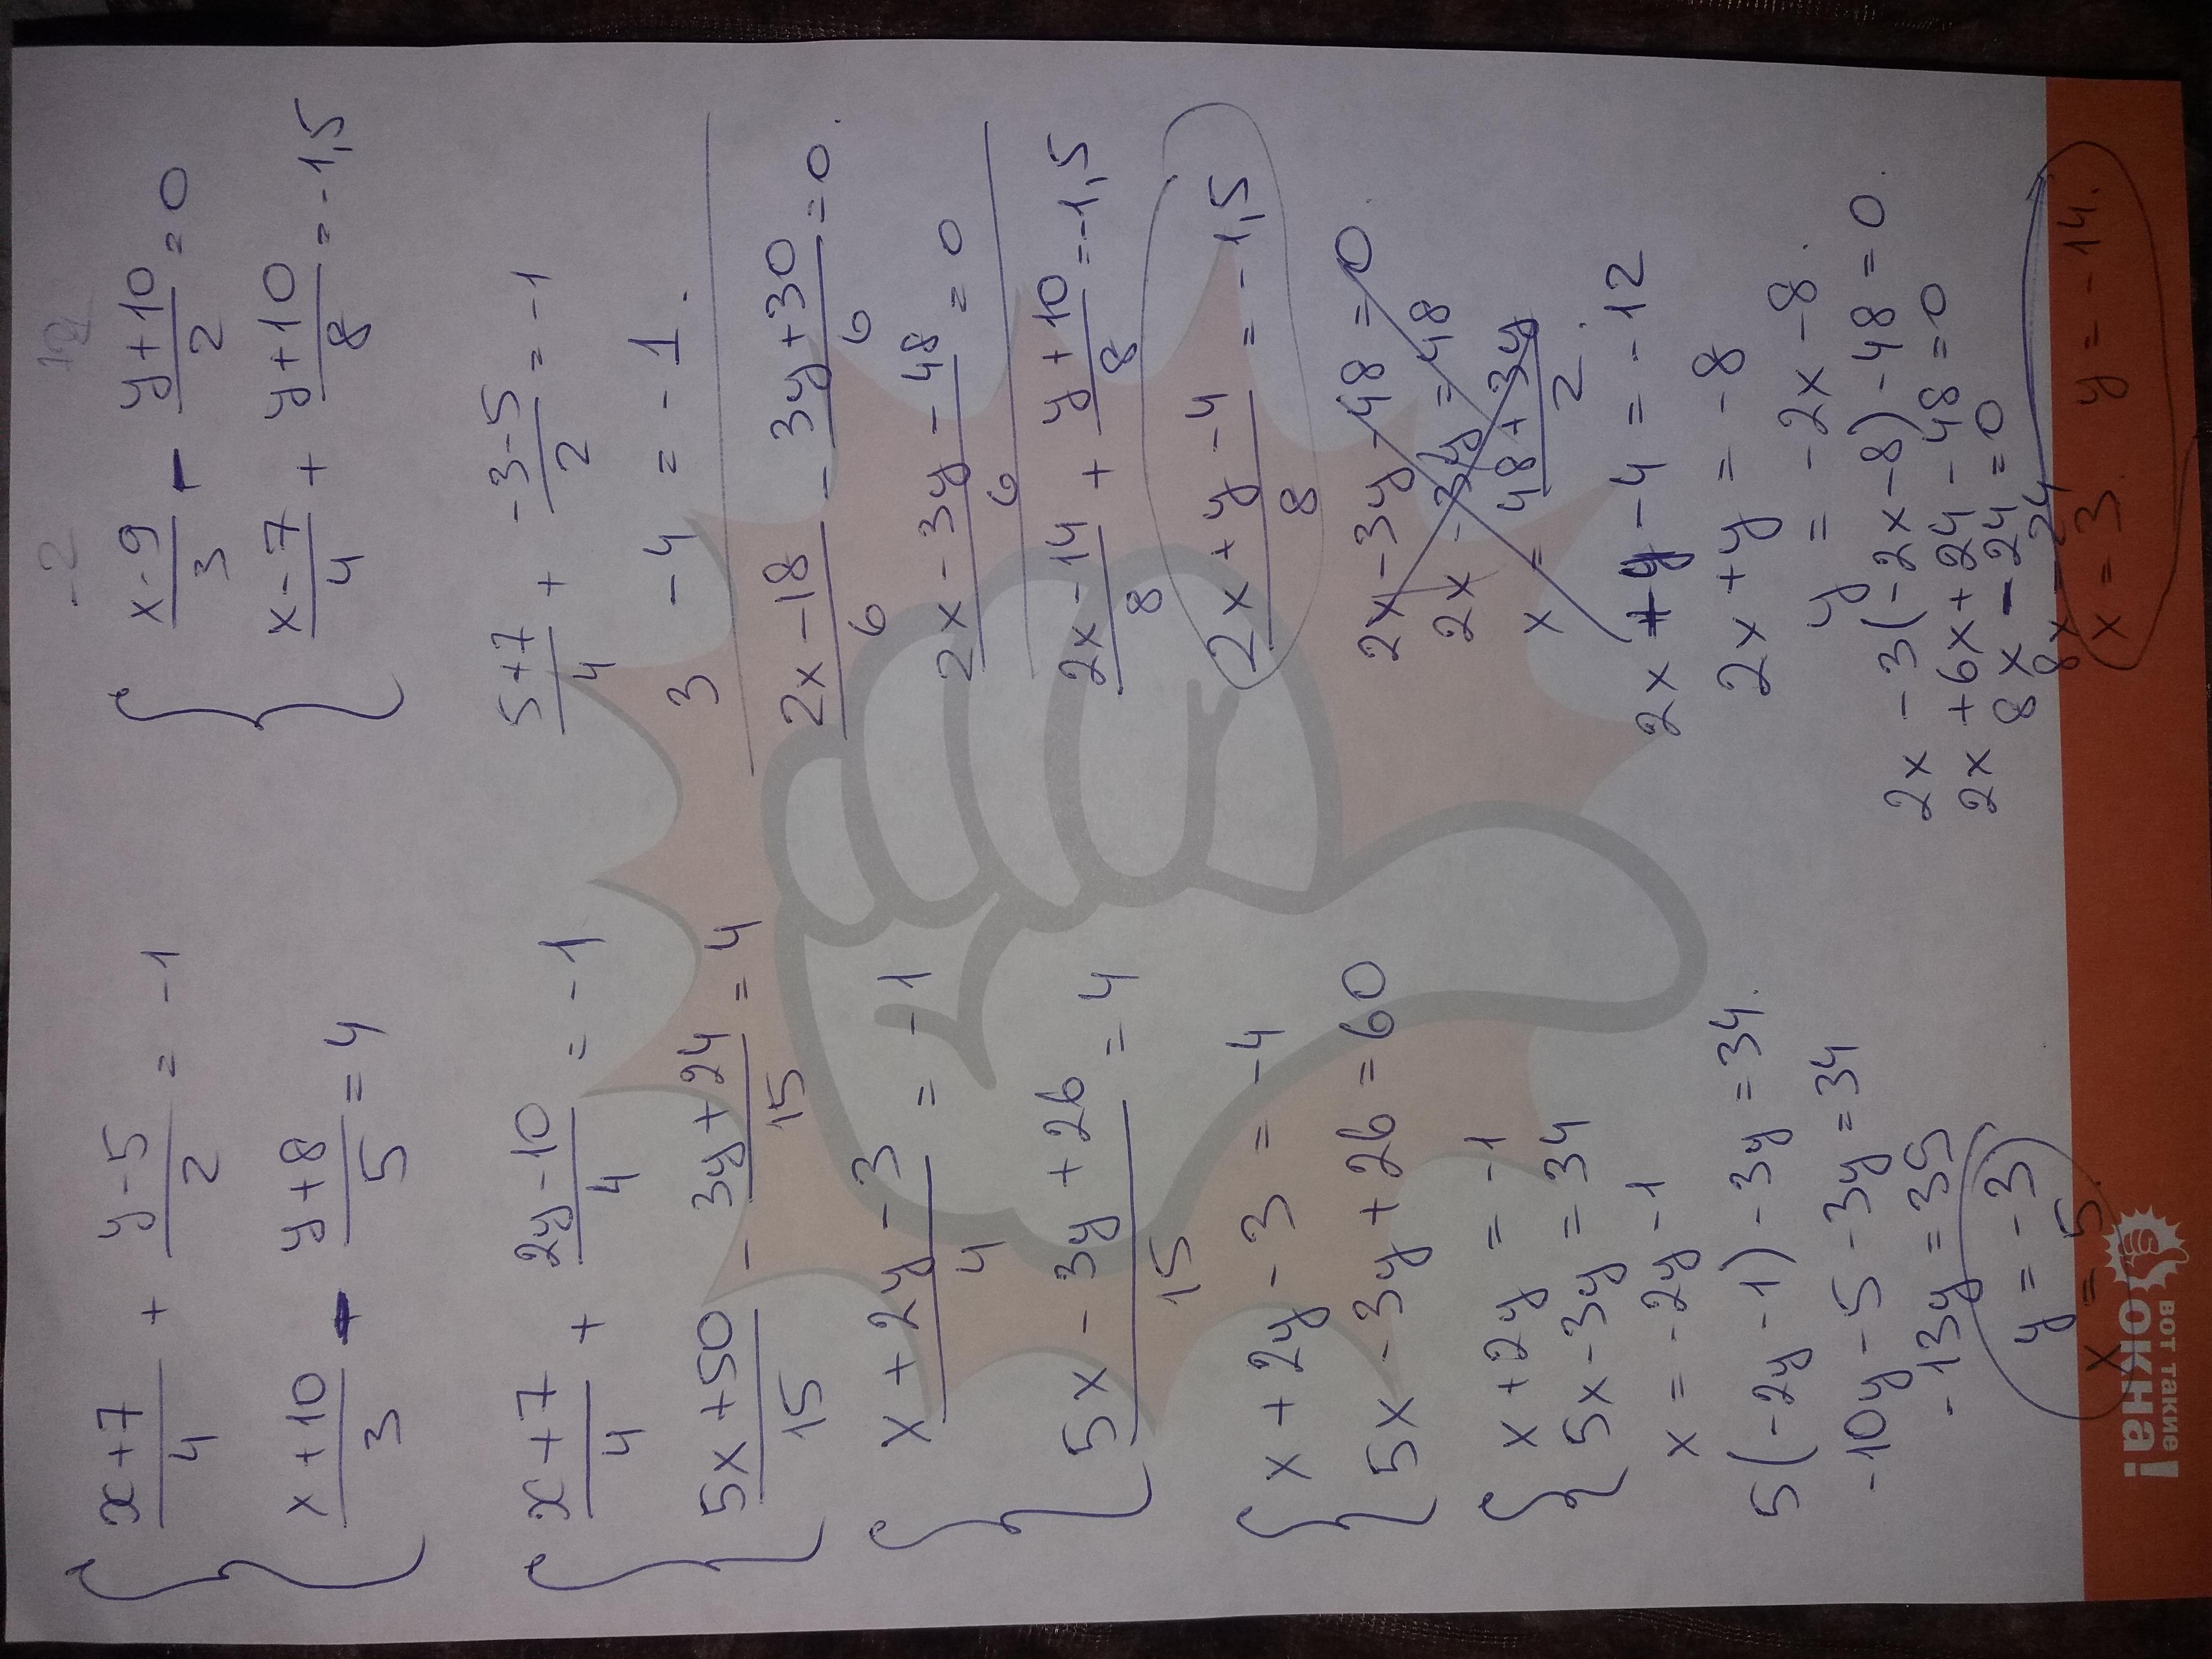 x+7/4 + y-5/2 = -1
x+10/3 - y+8/5 = 4
x+7/4 + 2y-10/4 = -1
5x+50/15 - 3y+24/15 = 4
x+2y-3/4 = -1
5x-3y+26/15 = 4
x+2y-3 = -4
5x-3y+26=60
x+2y = -1
5x-3y=34
x=-2y-1
5(-2y-1)-3y=34.
-10y-5-3y=34
-13y=35
y=-3
x = 5.
-2 12
x-9/3 - y+10/2 = 0
x-7/4 + y+10/8 = -1,5
5+7/4 + -3-5/2 = -1
3 -4 = -1.
2x-18/6 - 3y+30/6 = 0.
2x-3y-48/6 = 0
2x-14/8 + y+10/8 = -1,5
2x+y-4/8 = -1,5
2x-3y-48=0.
2x-3y=48
x= 48+3y/2.
2x+y-4=-12
2x+y=-8
y=-2x-8.
2x-3(-2x-8)-48=0.
2x+6x+24-48=0
8x-24=0
8x=24
x=3. y=-14.
вот такие
окна!